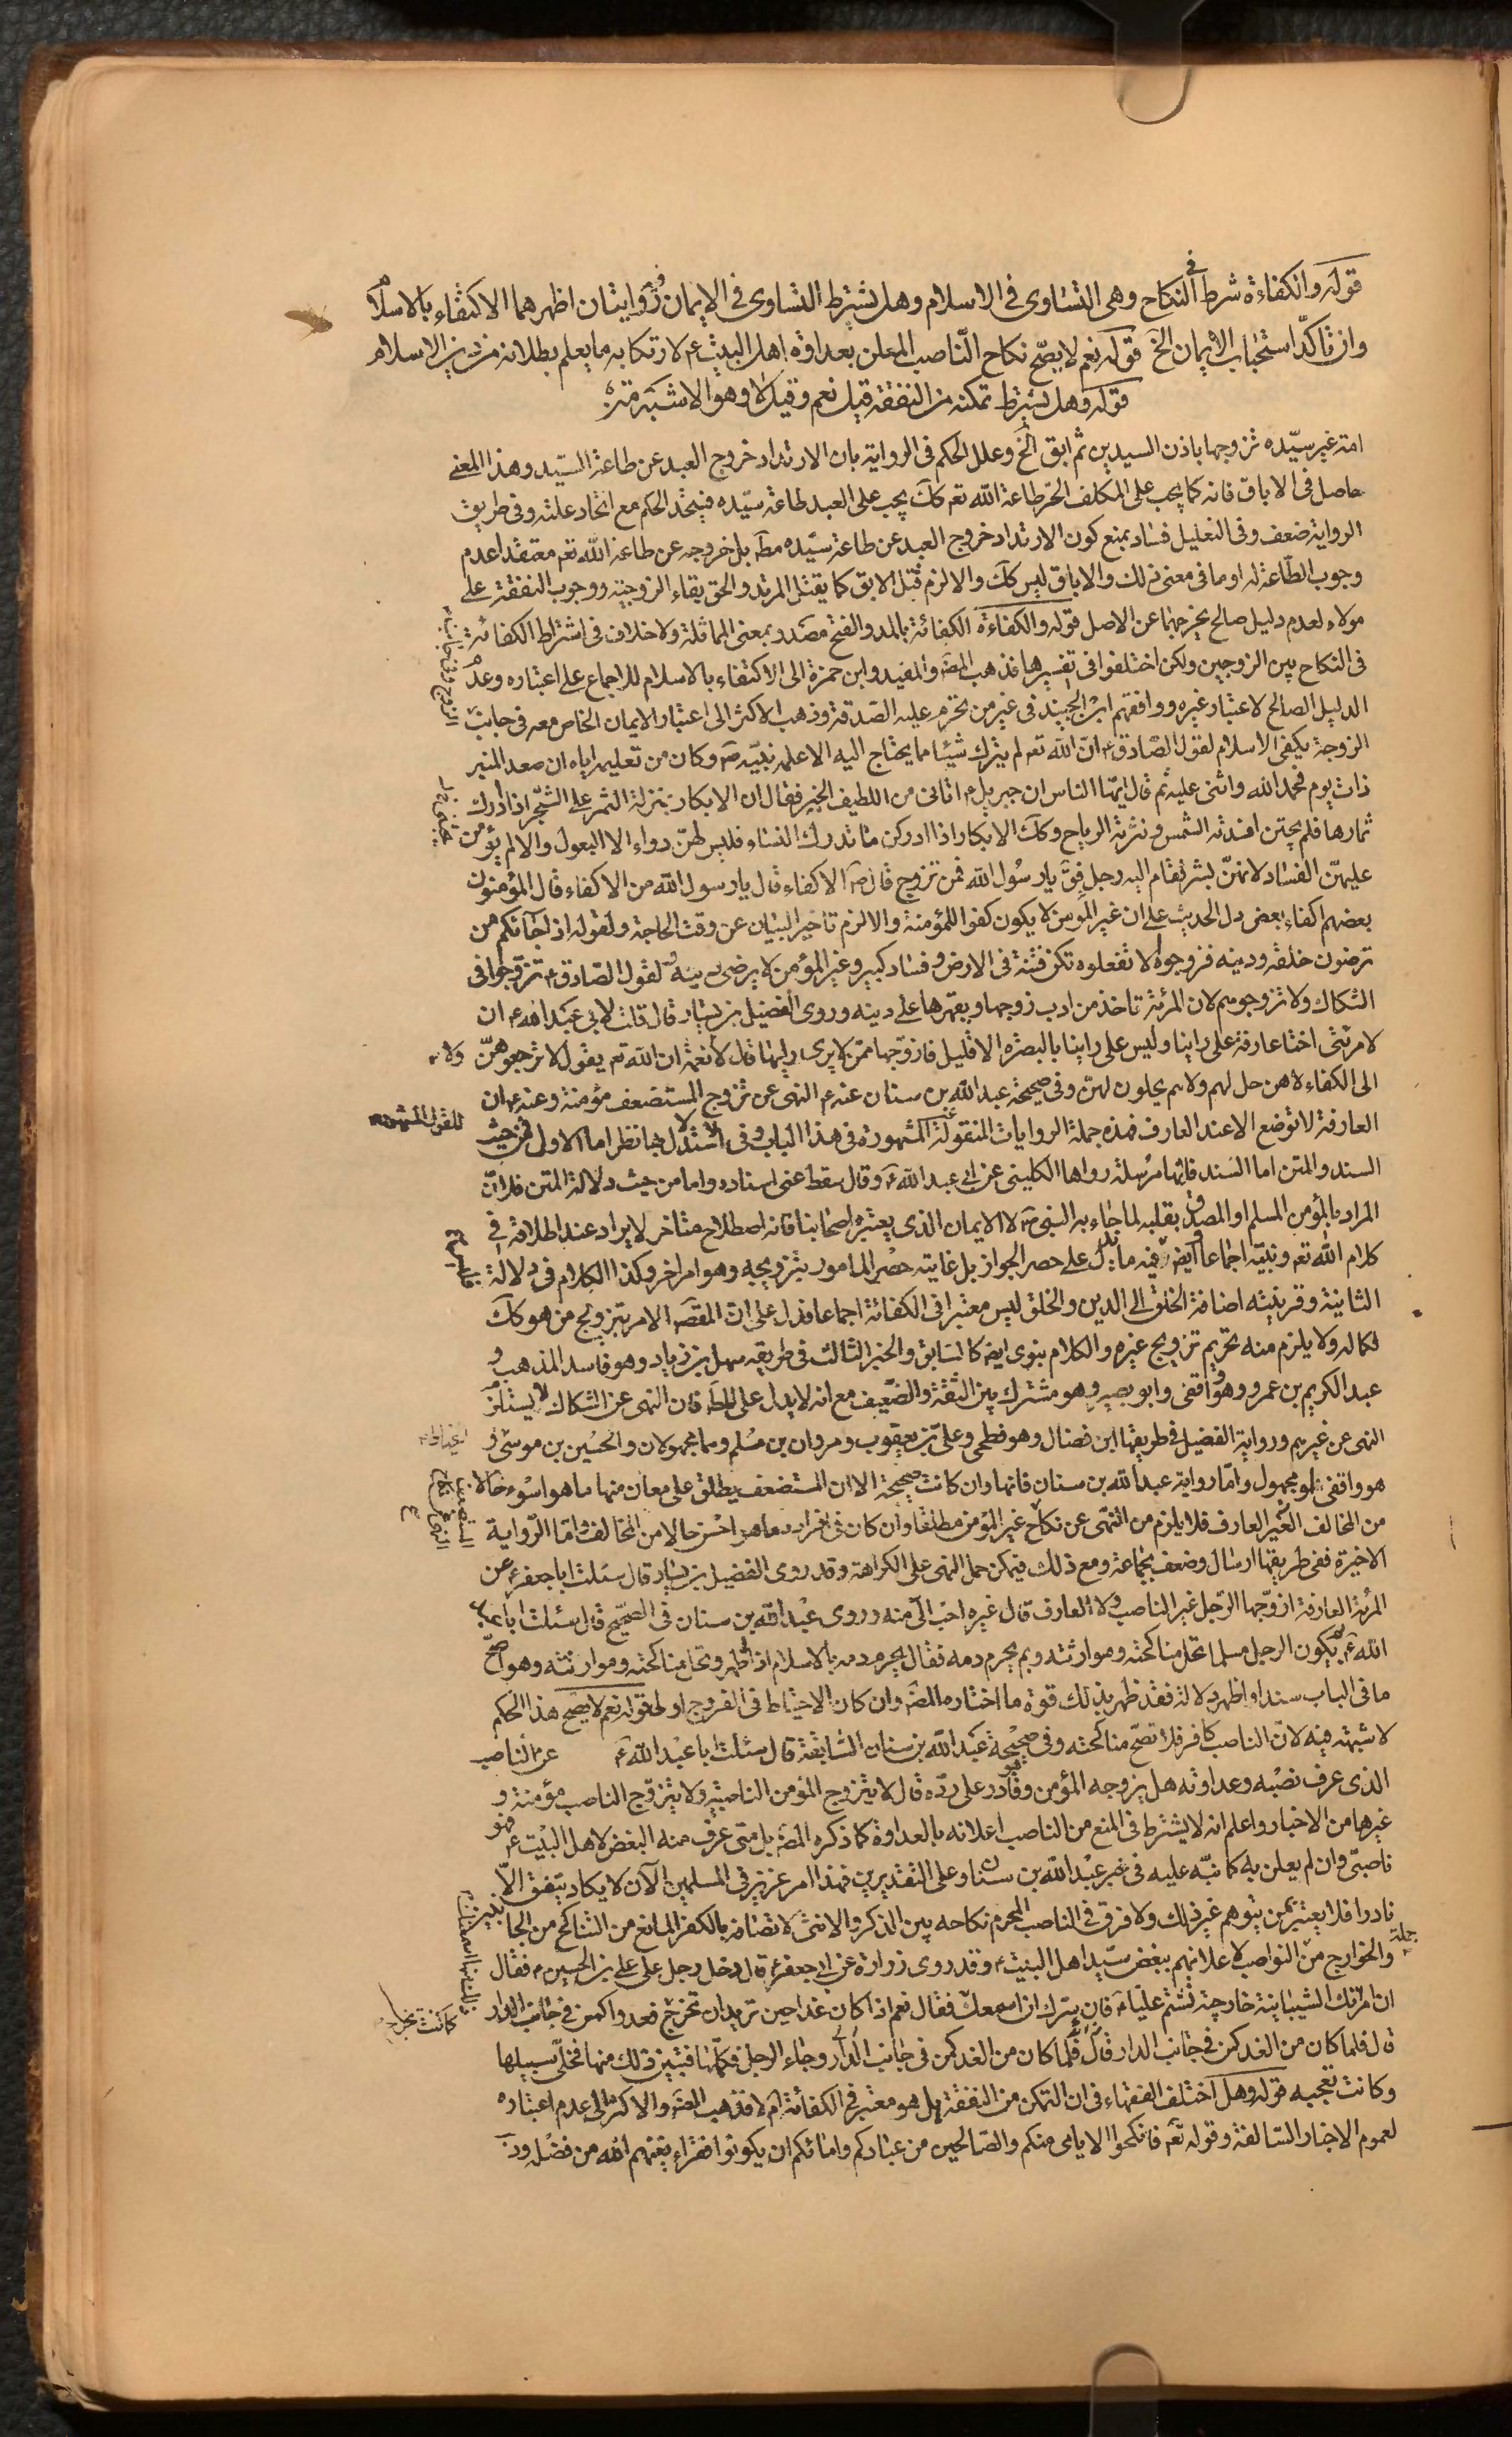 قوله والكفاءة شرط في النكاح وهى التساوى فى الاسلام وهل يشترط التساوى فى الايمان فيه روايتان اظهرهما الاكتفاء بالاسلام
وان تاكد استحباب الايمان الخ قوله نعم لا يصح نكاح الناصب المعلن بعداوة اهل البيت ع لارتكابه ما يعلم بطلانه من دين الاسلام
قوله وهل يشترط تمكنه من النفقة قيل نعم وقيل لا وهو الاشبه
امة غير سيده تزوجها باذن السيدين ثم ابق الخ وعلل الحكم فى الرواية بان الارتداد خروج العبد عن طاعة السيد وهذا المعنى
حاصل فى الاباق فانه كما يجب على المكلف الحر طاعة الله تعم كك يجب على العبد طاعة سيده فيتحد الحكم مع اتحاد علته وفى طريق
الرواية ضعف وفى التعليل فساد بمنع كون الارتداد خروج العبد عن طاعة سيده مطه بل خروجه عن طاعة الله تعم معتقدا عدم
وجوب الطاعة له او ما فى معنى ذلك والاباق ليس كك والا لزم قتل الابق كما يقتل المرتد والحق بقاء الزوجية ووجوب النفقة على
مولاه لعدم دليل صالح يخرجهما عن الاصل قوله والكفاءة الكفائة بالمد والفتح مصدر بمعنى المماثلة ولا خلاف فى اشتراط الكفائة
فى النكاح بين الزوجين ولكن اختلفوا فى تفسيرها فذهب المصه والمفيد وابن حمزة الى الاكتفاء بالاسلام للاجماع على اعتباره وعدم
الدليل الصالح لاعتبار غيره ووافقهم ابن الجنيد فى غير من تحرم عليه الصدقة وذهب الاكثر الى اعتبار الايمان الخاص معه فى جانب
الزوجة يكفى الاسلام لقول الصادق ع ان الله تعم لم يترك شيئا مما يحتاج اليه الا علمه نبيه ص وكان من تعليمه اياه ان صعد المنبر
ذات يوم فحمد الله واثنى عليه ثم قال ايها الناس ان جبريل ع اتانى من اللطيف الخبير فقال ان الابكار بمنزلة الثمر على الشجر اذا ادرك
ثمارها فلم يجتن افسدته الشمس ونثرته الرياح وكك الابكار اذا ادركن ما تدرك النساء فليس لهن دواء الا البعول والا لم يؤمن
عليهن الفساد لانهن بشر فقام اليه رجل فق يا رسول الله فمن تزوج قال ص الاكفاء قال يا رسول الله من الاكفاء قال المؤمنون
بعضهم اكفاء بعض دل الحديث على ان غير المؤمن لا يكون كفوا للمؤمنة والا لزم تاخير البيان عن وقت الحاجة ولقوله اذا جائكم من
ترضون خلقه ودينه فزوجوه الا تفعلوه تكن فتنة فى الارض وفساد كبير وغير المؤمن لا يرضى دينه ولقول الصادق ع تزوجوا فى
الشكاك ولا تزوجوهم لان المرئة تاخذ من ادب زوجها ويقهرها على دينه وروى الفضيل بن يسار قال قلت لابى عبد الله ع ان
لامرئتى اختا عارفة على راينا وليس على راينا بالبصرة الا قليل فازوجها ممن لا يرى رايها قال لا نعمة ان الله تعم يقول لا ترجعوهن
الى الكفار لا هن حل لهم ولا هم يحلون لهن وفى صحيحة عبد الله بن سنان عنه ع النهى عن تزوج المستضعف مؤمنة وعنه ع ان
العارفة لا توضع الا عند العارف فهذه جملة الروايات المنقولة المشهورة فى هذا الباب وفى الاستدلال بها نظر اما الاول فمن حيث
السند والمتن اما السند فانها مرسلة رواها الكلينى عن ابى عبد الله ع وقال سقط عنى اسناده واما من حيث دلالة المتن فلان
المراد بالمؤمن المسلم او المصدق بقلبه لما جاء به النبى ص لا الايمان الذى يعتبره اصحابنا فانه اصطلاح متاخر لا يراد عند اطلاقه فى
كلام الله تعم ونبيه اجماعا وايضا فيه ما يدل على حصر الجواز بل غايته حصر المامور بتزويجه وهو امر اخر وكذا الكلام فى دلالة
الثانية وقرينته اضافة الخلق الى الدين والخلق ليس معتبرا فى الكفائة اجماعا فدل على ان المقصه الامر بتزويج من هو كك
لكماله ولا يلزم منه تحريم تزويج غيره والكلام بنوى ايضا كالسابق والخبر الثالث فى طريقه سهل بن زياد وهو فاسد المذهب و
عبد الكريم بن عمرو وهو واقفى وابو بصير وهو مشترك بين الثقة والضعيف مع انه لا يدل على المطه فان النهى عن الشكاك لا يستلزم
النهى عن غيرهم ورواية الفضيل فى طريقها ابن فضال وهو فطحى وعلى بن يعقوب ومروان بن مسلم وهما مجهولان والحسين بن موسى و
هو واقفى او مجهول واما رواية عبد الله بن سنان فانها وان كانت صحيحة الا ان المستضعف يطلق على معان منها ما هو اسوء حالا
من المخالف الغير العارف فلا يلزم من النهى عن نكاح غير المؤمن مطلقا وان كان فى افراده ما هو احسن حالا من المخالف واما الرواية
الاخيرة ففى طريقها ارسال وضعف بجماعة ومع ذلك فيمكن حمل النهى على الكراهة وقد روى الفضيل بن يسار قال سئلت ابا جعفر ع عن
المرئة العارفة ازوجها الرجل غير الناصب ولا العارف قال غيره احب الى منه وروى عبد الله بن سنان فى الصحيح قال سئلت ابا عبد
الله ع بم يكون الرجل مسلما تحل مناكحته وموارثته وبم يحرم دمه فقال يحرم دمه بالاسلام اذا ظهر وتحل مناكحته وموارثته وهو اصح
ما فى الباب سندا واظهر دلالة فقد ظهر بذلك قوة ما اختاره المصه وان كان الاحتياط فى الفروج اولى قوله نعم لا يصح هذا الحكم
لا شبهة فيه لان الناصب كافر فلا تصح مناكحته وفى صحيحة عبد الله بن سنان السابقة قال سئلت ابا عبد الله ع عن الناصب
الذى عرف نصبه وعداوته هل يزوجه المؤمن وهو قادر على رده قال لا يتزوج المؤمن الناصبية ولا يتزوج الناصب مؤمنة و
غيرها من الاخبار واعلم انه لا يشترط فى المنع من الناصب اعلانه بالعداوة كما ذكره المصه بل متى عرف منه البغض لاهل البيت ع فهو
ناصبى وان لم يعلن به كما نبه عليه فى خبر عبد الله بن سنان وعلى التقديرين فهذا امر عزيز فى المسلمين الآن لا يكاد يتفق الا
نادرا فلا يعتبر بمن يتوهم غير ذلك ولا فرق فى الناصب المحرم نكاحه بين الذكر والانثى لاتصافه بالكفر المانع من التناكح من الجانبين
والخوارج من جملة النواصب لاعلانهم ببغض سيد اهل البيت ع وقد روى زرارة عن ابى جعفر ع قال دخل رجل على على بن الحسين ع فقال
ان امرئتك الشيبانية خارجية تشتم عليا ع فان يسرك ان اسمعك فقال نعم اذا كان غدا حين تريد ان تخرج فعد واكمن فى جانب الدار
قال فلما كان من الغد كمن فى جانب الدار وجاء الرجل فكلمها فتبين ذلك منها فخلى سبيلها
وكانت تعجبه قوله وهل اختلف الفقهاء فى ان التمكن من النفقة هل هو معتبر فى الكفائة ام لا فذهب المصه والاكثر الى عدم اعتباره
لعموم الاخبار السالفة وقوله تعم فانكحوا الايامى منكم والصالحين من عبادكم وامائكم ان يكونوا فقراء يغنهم الله من فضله